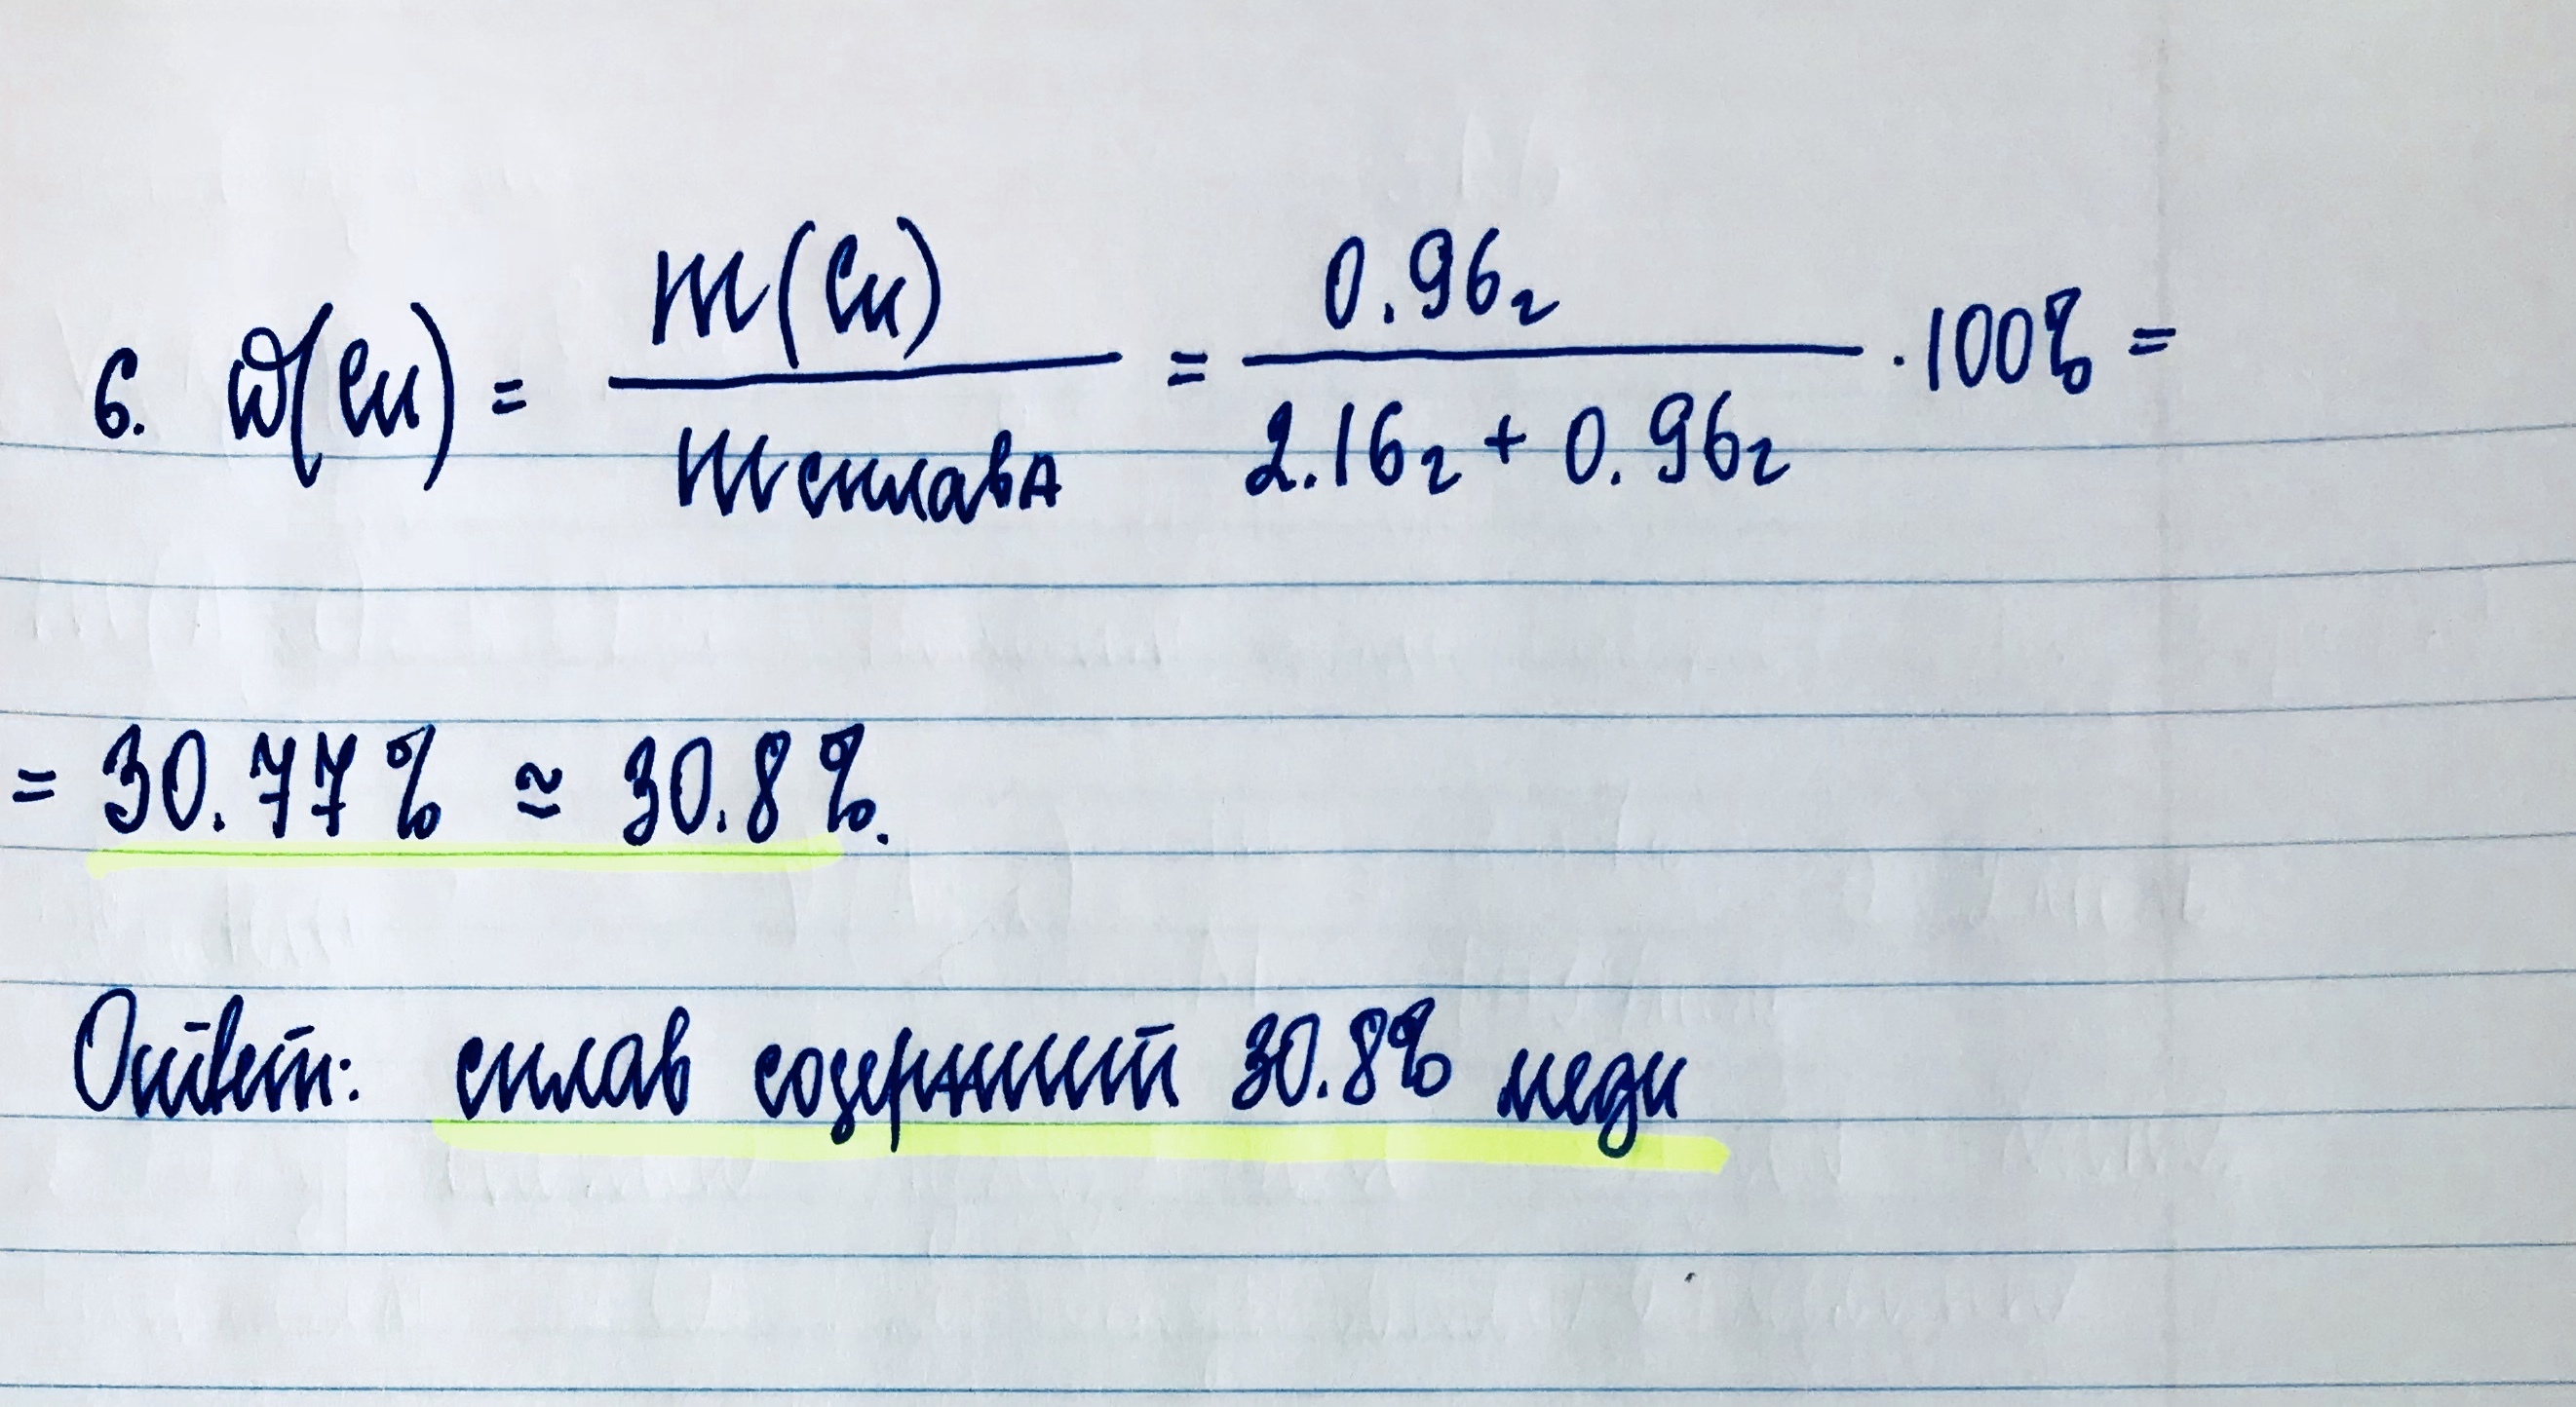 6. ω(Cu) = m(Cu) / m сплава = 0.96г / 2.16г + 0.96г · 100% =
= 30.77% ≃ 30.8%.
Ответ: сплав содержит 30.8% меди